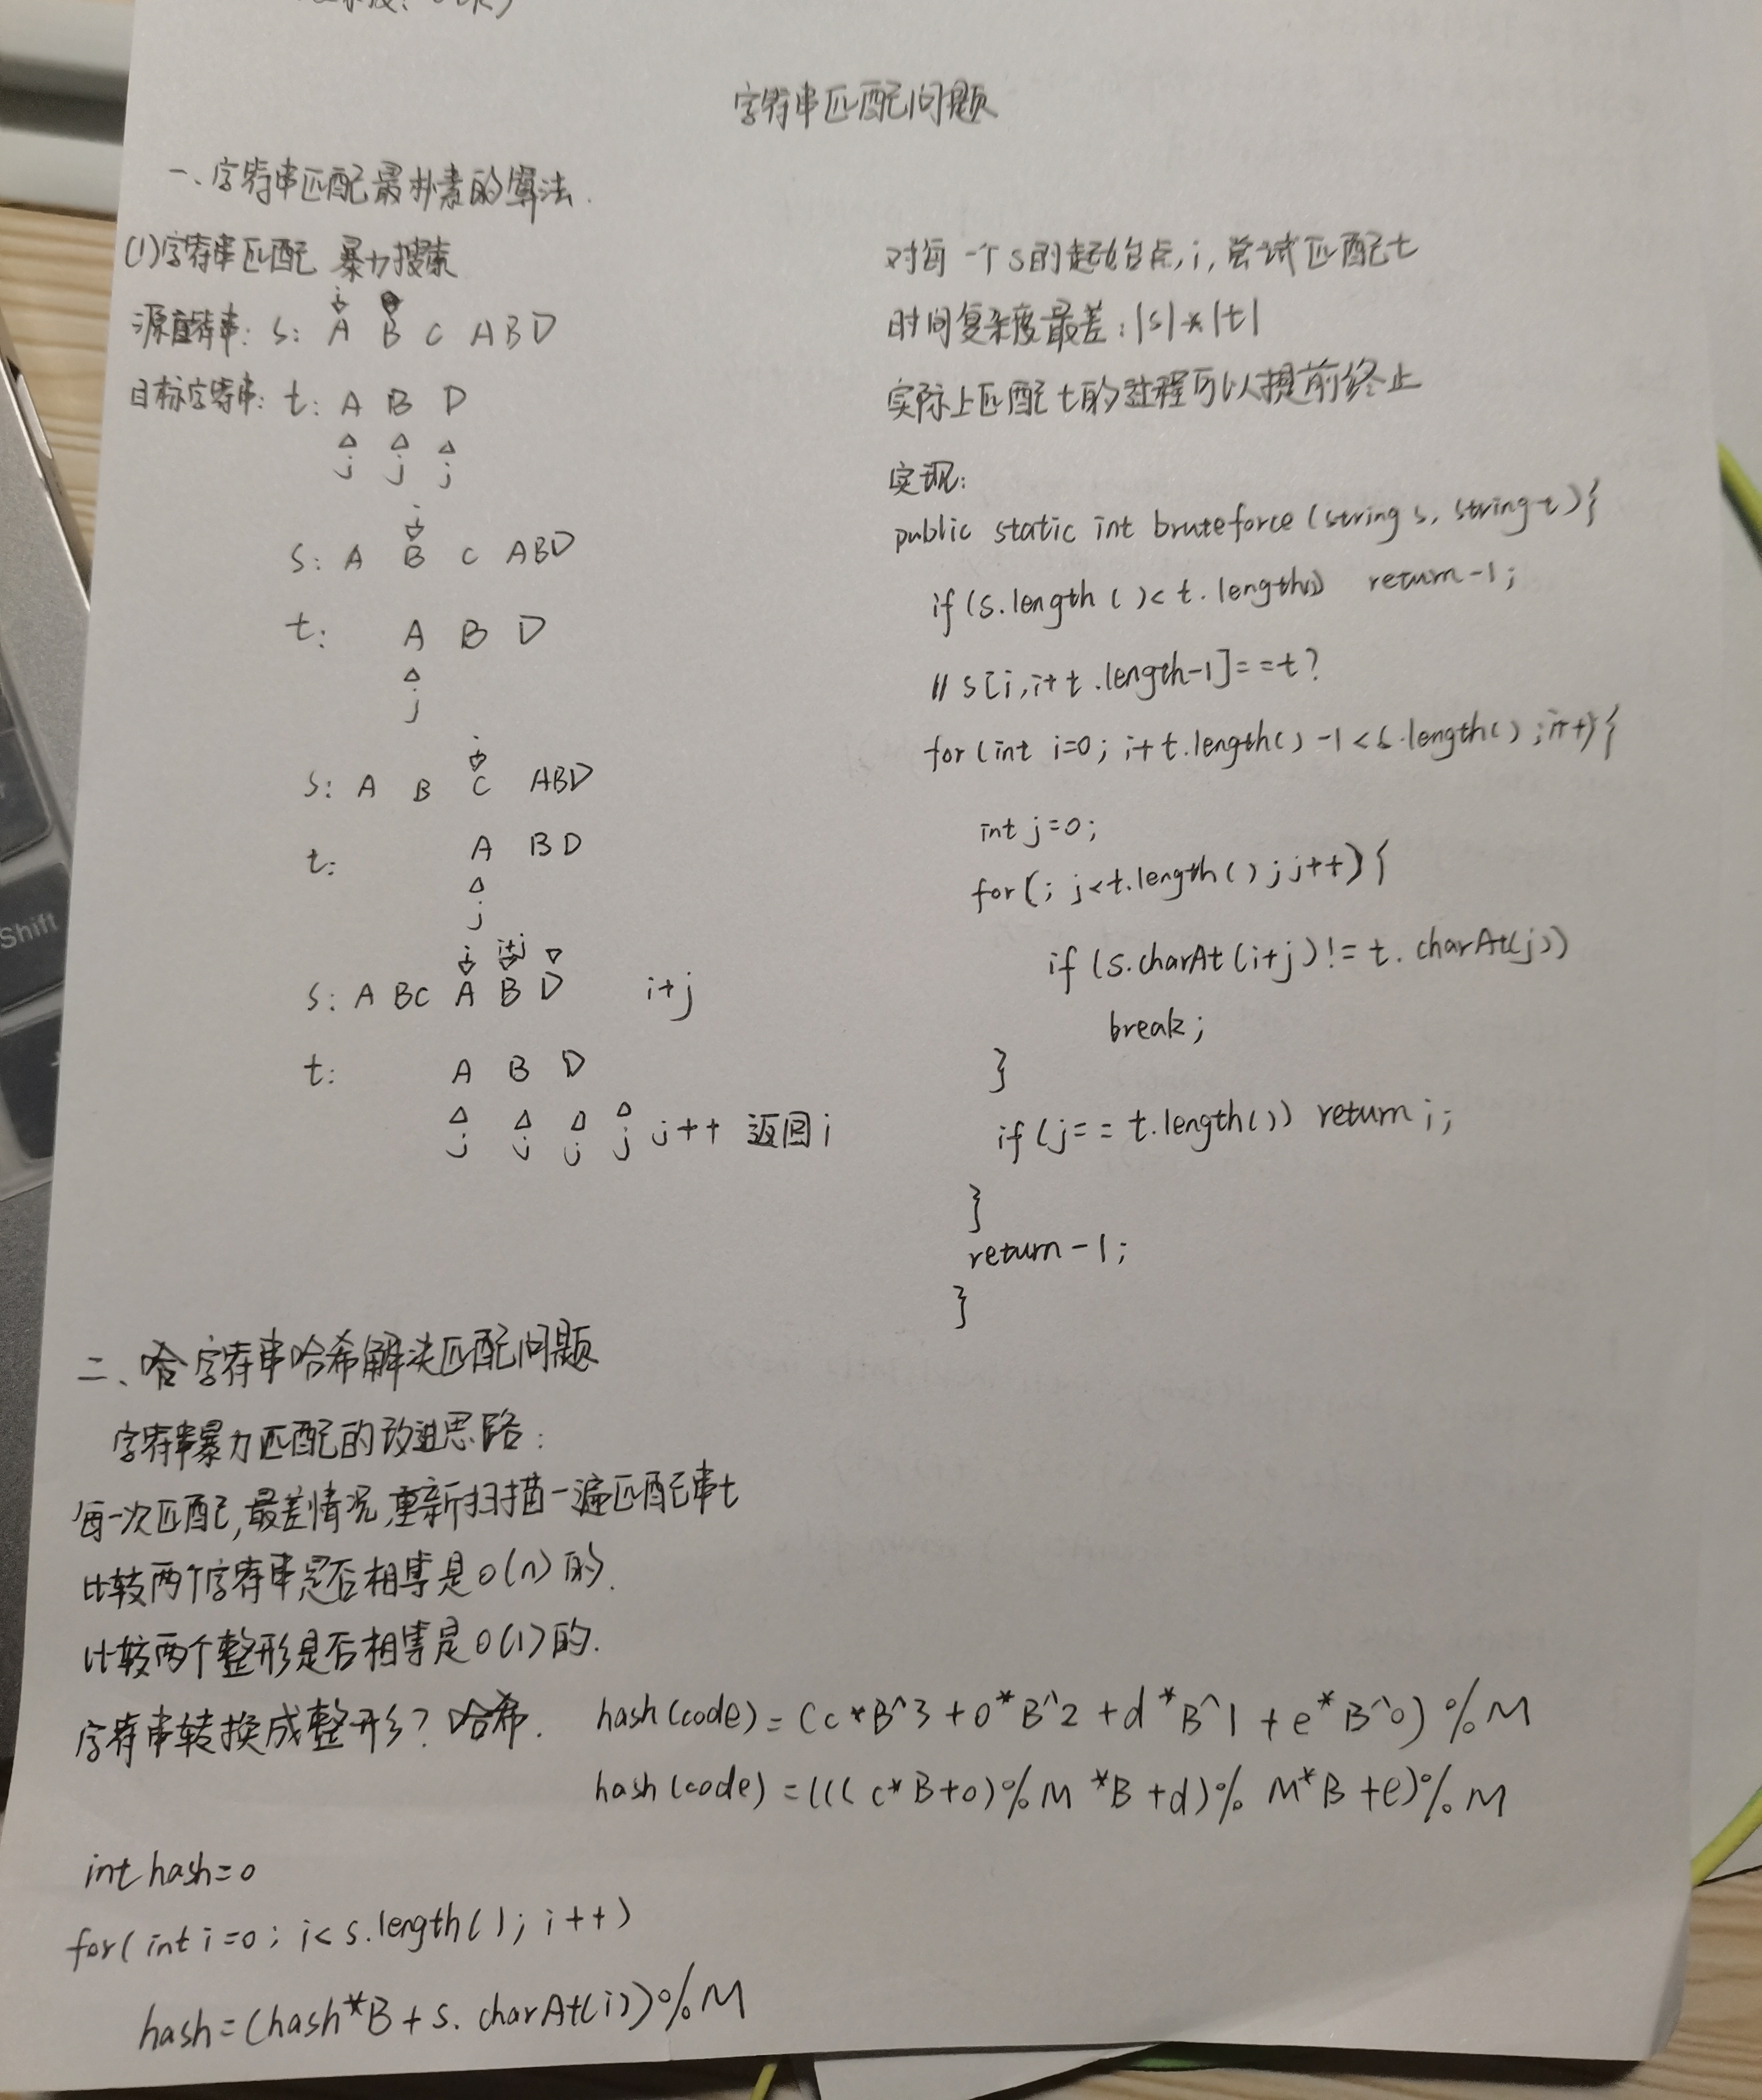 字符串匹配问题
一、字符串匹配最朴素的算法.
(1)字符串匹配 暴力搜索
i
源字符串: S: A B C A B D
目标字符串: t: A B D
j j j
i
S: A B C ABD
t: A B D
j
i
S: A B C ABD
t: A B D
j
i i+j
S: A BC A B D i+j
t: A B D
j j j j j++ 返回i
对每一个S的起始点i,尝试匹配t
时间复杂度最差:|s|*|t|
实际上匹配t的过程可以提前终止
实现:
public static int bruteforce (string s, string t){
if (s.length ()< t. length()) return -1;
// s[i, i+ t .length-1]==t?
for (int i=0; i+ t.length() -1 < s.length() ; i++){
int j=0;
for(; j<t.length() ; j++){
if (s.charAt (i+j) != t. charAt(j))
break;
}
if (j== t.length()) return i;
}
return -1;
}
二、字符串哈希解决匹配问题
字符串暴力匹配的改进思路:
每一次匹配,最差情况,重新扫描一遍匹配串t
比较两个字符串是否相等是O(n)的.
比较两个整形是否相等是O(1)的.
字符串转换成整形?哈希.
hash(code)= (c*B^3 + o*B^2 + d*B^1 + e*B^0) % M
hash(code) = (((c*B+o)%M *B +d)% M*B +e)% M
int hash=0
for( int i=0; i< s.length(); i++)
hash= (hash*B + s. charAt(i))%M